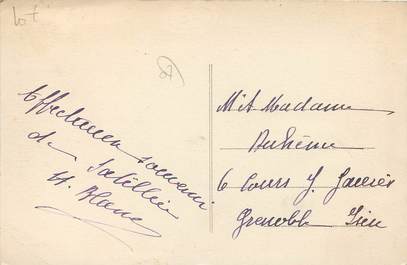 Lot
Affectueux souvenir
de Satillieu
H. Blanc
M et Madame
6 Cours J. Janvier
Grenoble Isère